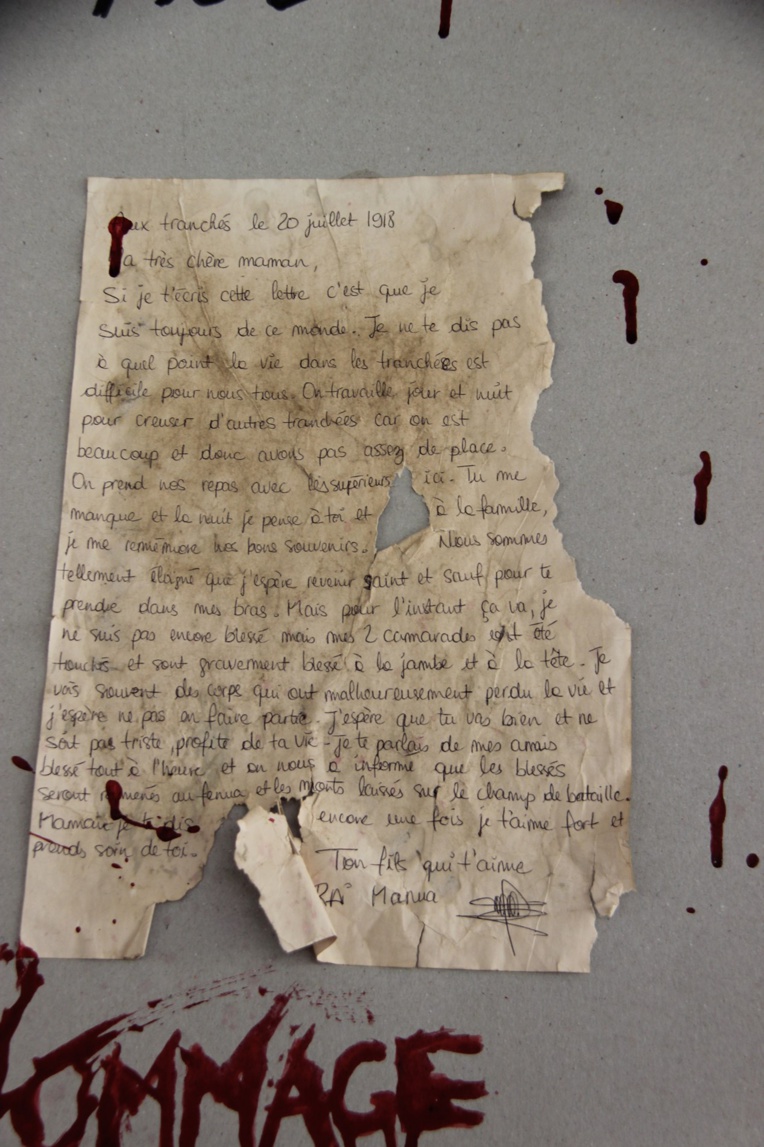 ux tranchés le 20 juillet 1918
a très chère maman,
Si je t'écris cette lettre c'est que je
suis toujours de ce monde.. Je ne te dis pas
à quel point la vie dans les tranchées est
difficile pour nous tous. On travaille jour et nuit
pour creuser d'autres tranchées car on est
beaucoup et donc avons pas assez de place.
On prend nos repas avec les supérieurs ici. Tu me
manque et la nuit je pense à toi et à la famille,
je me remémore nos bons souvenirs. Nous sommes
tellement éloigné que j'espère revenir saint et sauf pour te
prendre dans mes bras. Mais pour l'instant ça va, je
ne suis pas encore blessé mais mes 2 camarades ont été
touchés et sont gravement blessé à la jambe et à la tête. Je
vois souvent des corps qui ont malheureusement perdu la vie et
j'espère ne pas en faire partie. J'espère que tu vas bien et ne
soit pas triste, profite de ta vie. Je te parlais de mes amis
blessé tout à l'heure et on nous a informé que les blessés
seront ramenés au fenua et les morts laissés sur le champ de bataille.
Maman je te dis encore une fois je t'aime fort et
prends soin de toi.
Ton fils qui t'aime
Manua
HOMMAGE